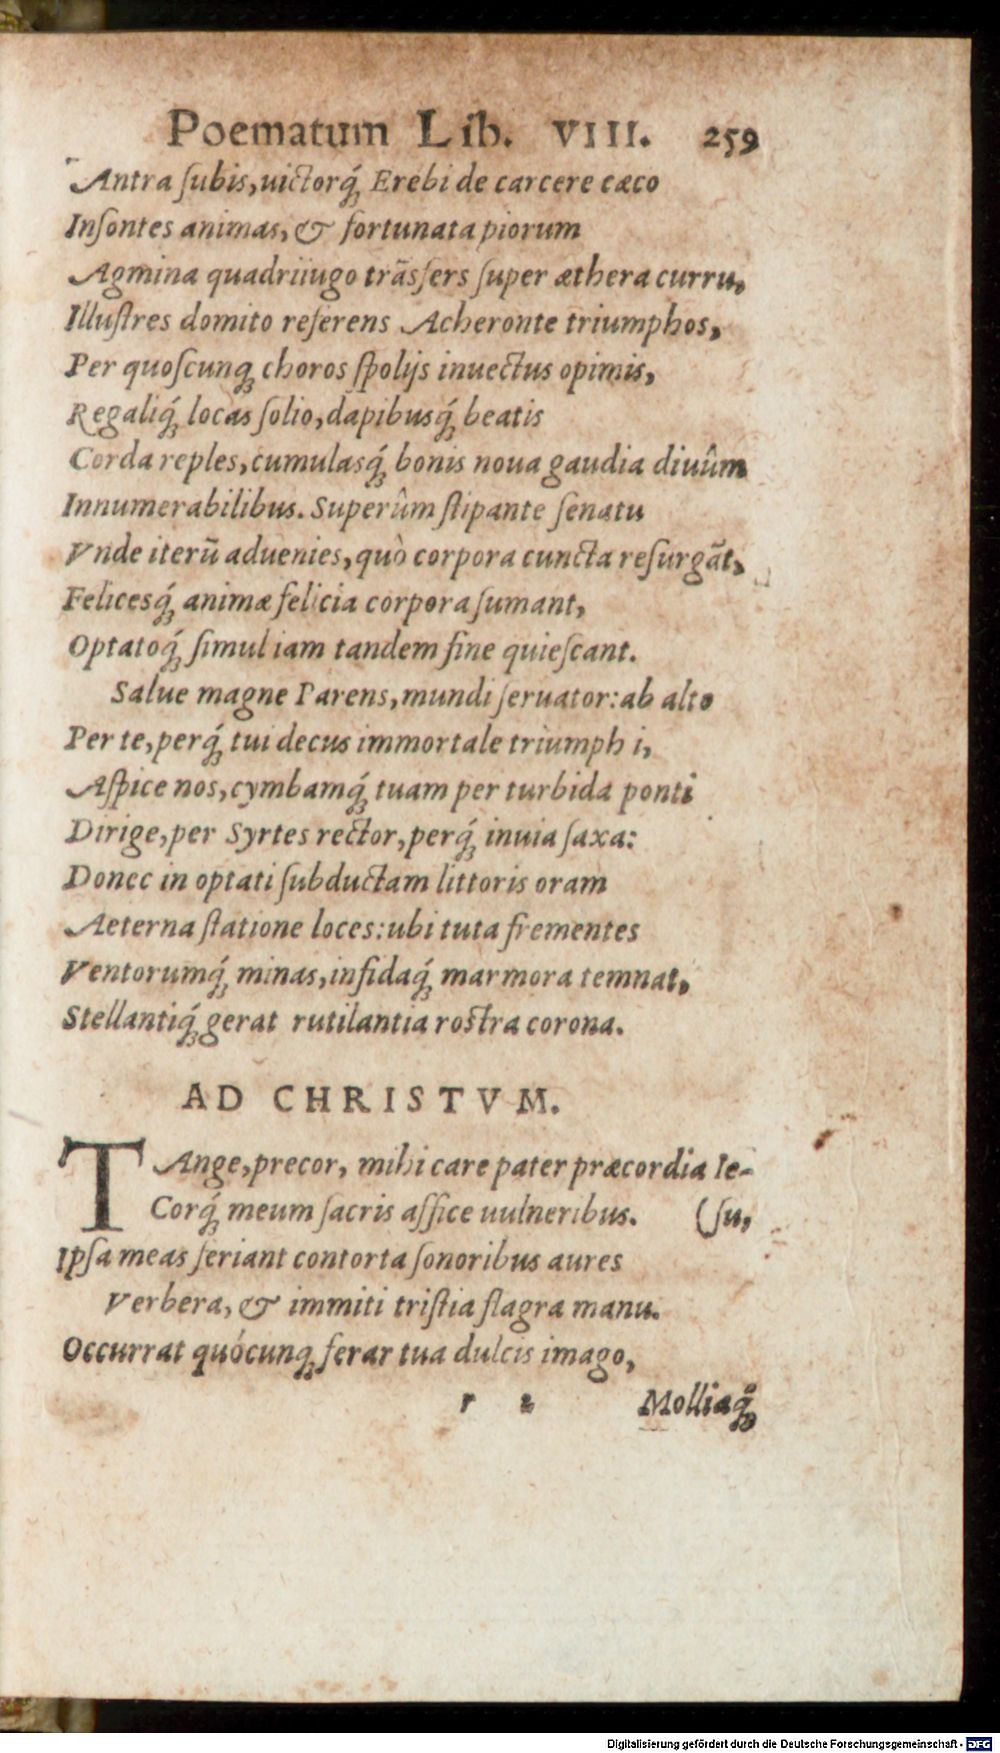 Poematum Lib. VIII. 259
Antra ſubis, uictorq́; Erebi de carcere cæco
Inſontes animas, & fortunata piorum
Agmina quadriiugo trãsfers ſuper æthera curru,
Illuſtres domito referens Acheronte triumphos,
Per quoſcunq; choros ſpolijs inuectus opimis,
Regaliq́; locas ſolio, dapibusq́; beatis
Corda reples, cumulasq́; bonis noua gaudia diuûm
Innumerabilibus. Superûm ſtipante ſenatu
Vnde iterũ aduenies, quò corpora cuncta reſurgãt,
Felicesq́; animæ felicia corpora ſumant,
Optatoq́; ſimul iam tandem fine quieſcant.
Salue magne Parens, mundi ſeruator: ab alto
Per te, perq́; tui decus immortale triumphi,
Aſpice nos, cymbamq́; tuam per turbida ponti
Dirige, per Syrtes rector, perq́; inuia ſaxa:
Donec in optati ſubductam littoris oram
Aeterna ſtatione loces: ubi tuta frementes
Ventorumq́; minas, infidaq́; marmora temnat,
Stellantiq́; gerat rutilantia roſtra corona.
AD CHRISTVM.
TAnge, precor, mihi care pater præcordia Ie-
Corq́; meum ſacris affice uulneribus. (ſu,
Ipſa meas feriant contorta ſonoribus aures
Verbera, & immiti triſtia flagra manu.
Occurrat quócunq; ferar tua dulcis imago,
r 2 Molliaq́;
Digitalisierung gefördert durch die Deutsche Forschungsgemeinschaft - DFG